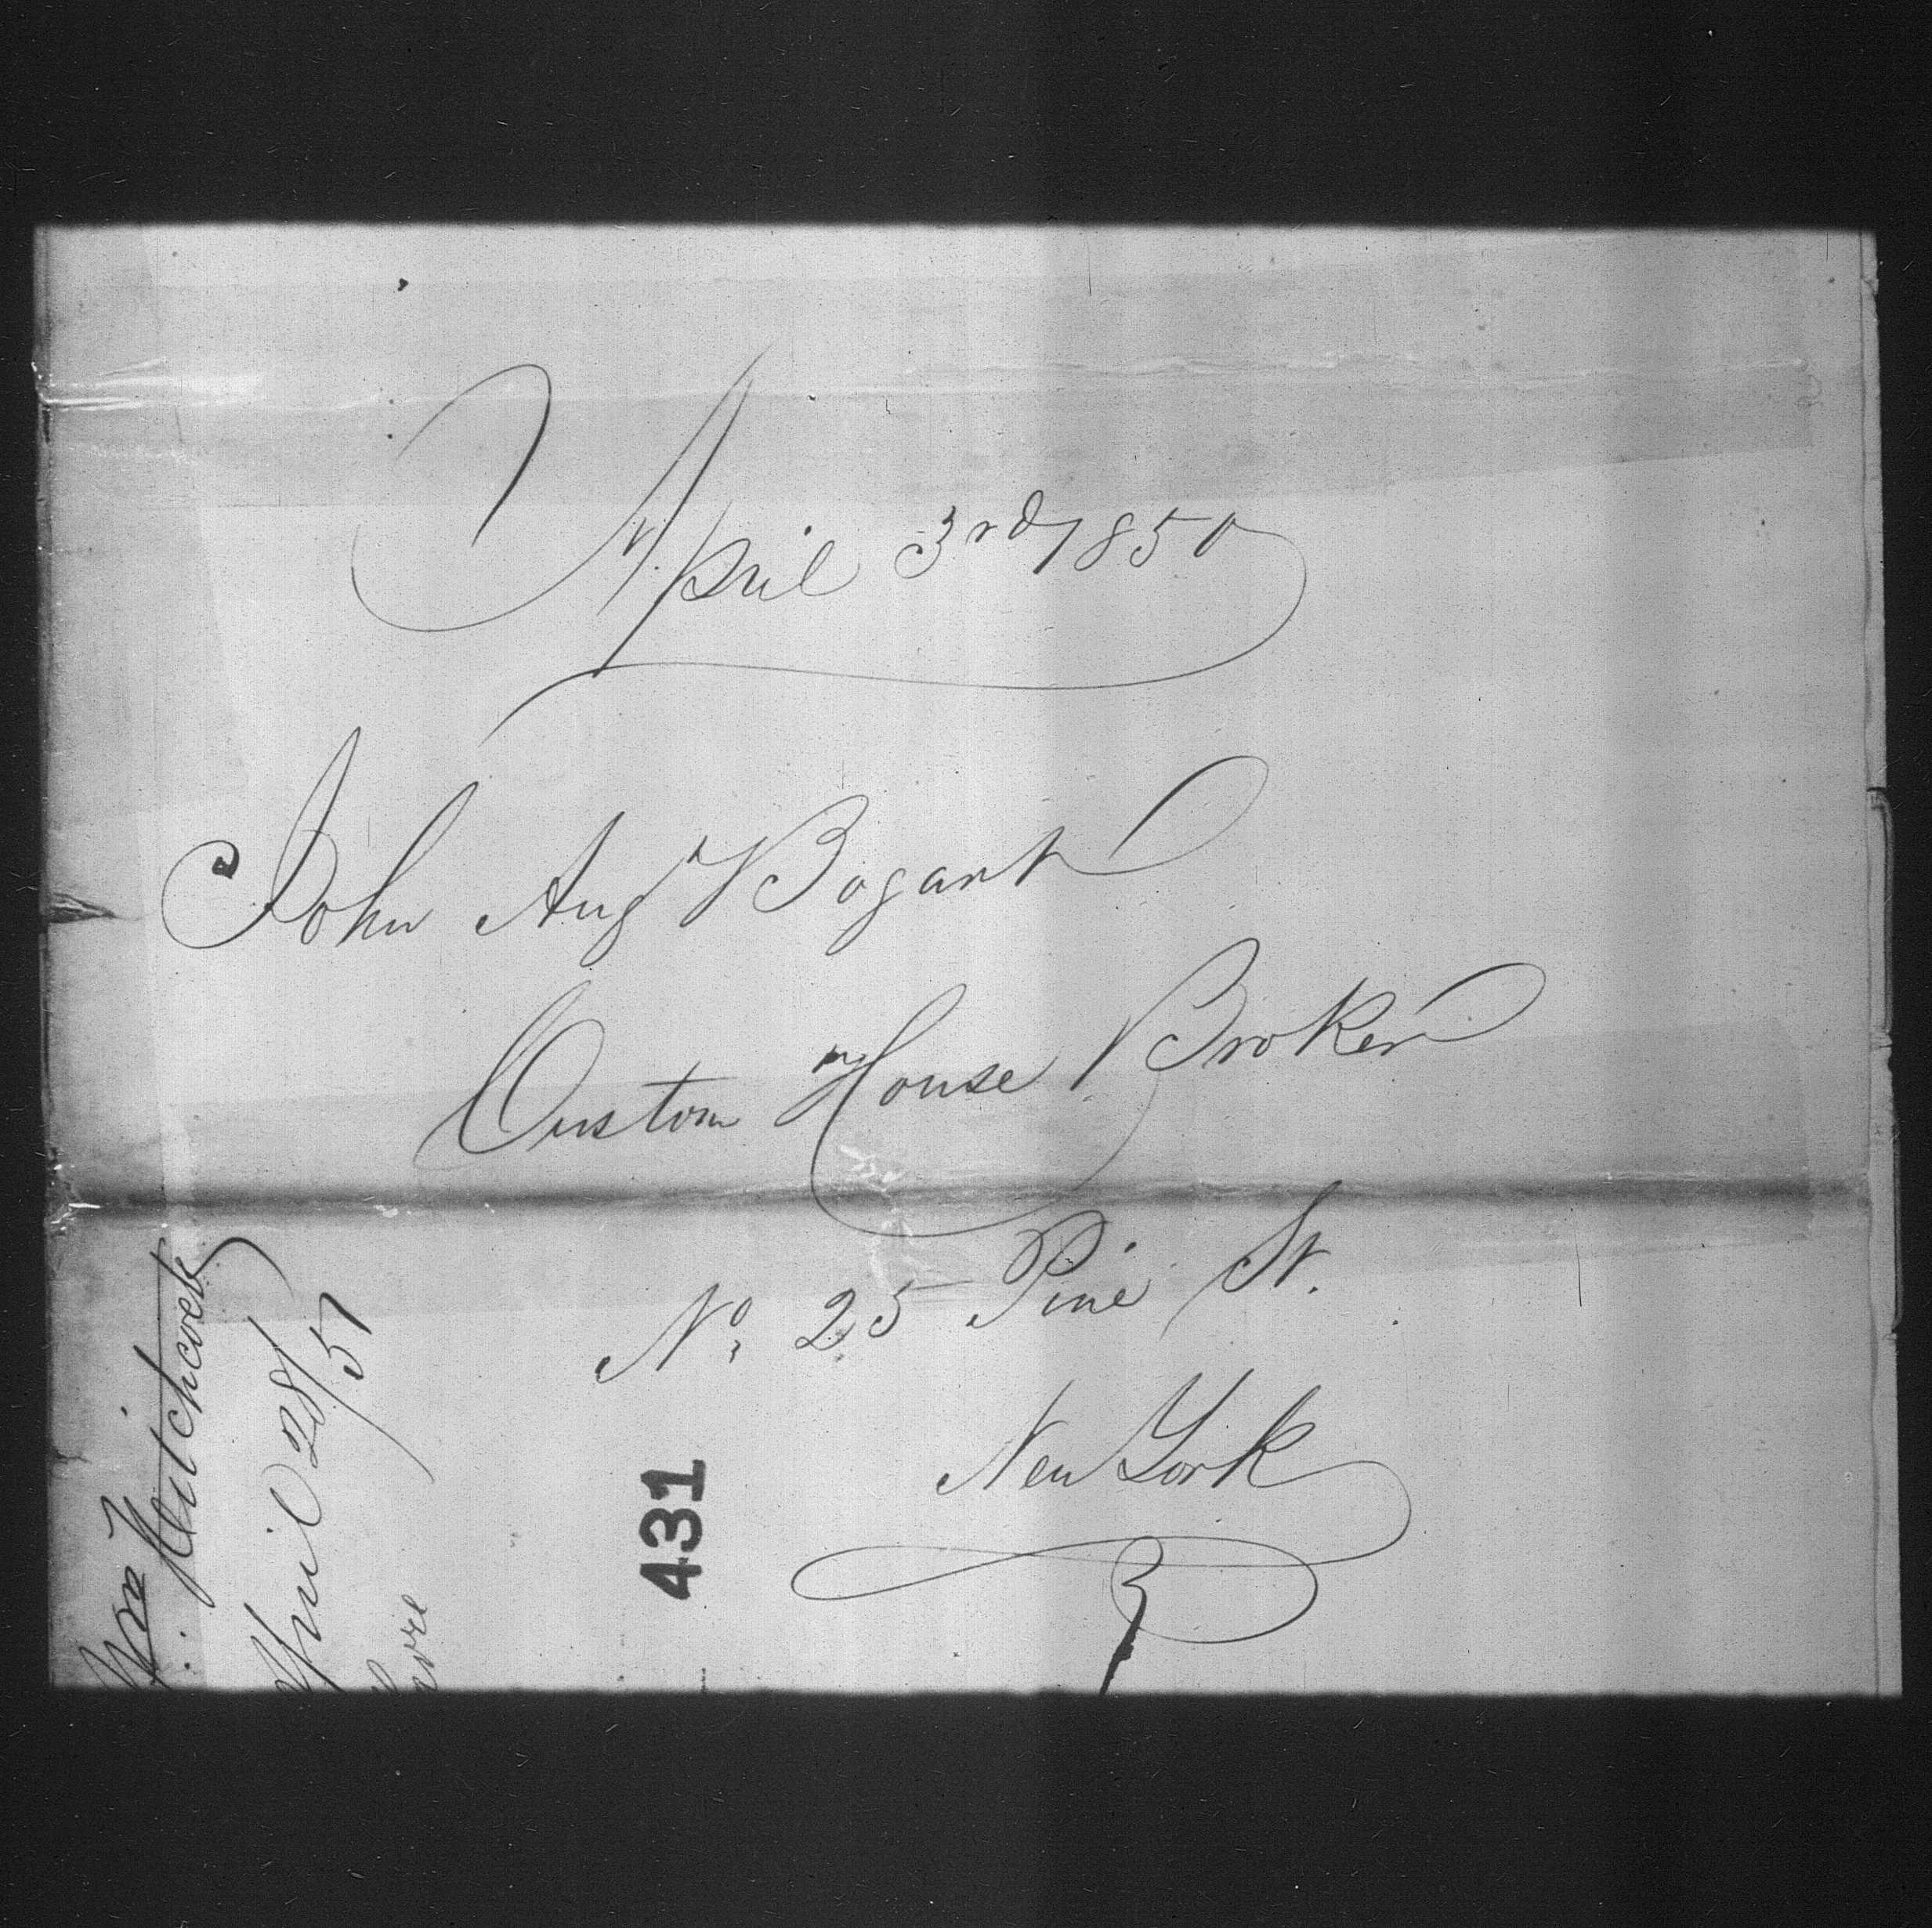 April 3rd 1850
John Aug Bogart
Custom House Broker
No. 25 Pine St.
New York
431
April 28/51